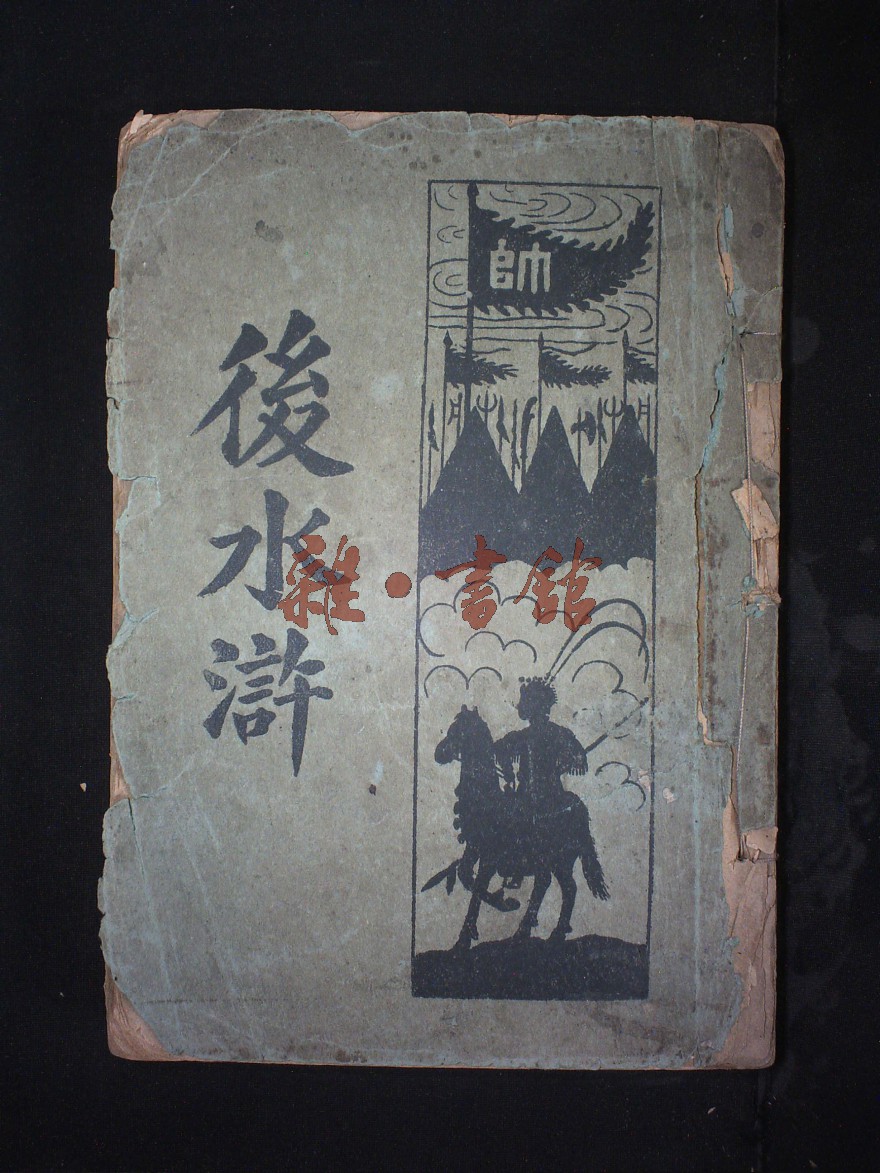 帥
後水滸
雜·書館